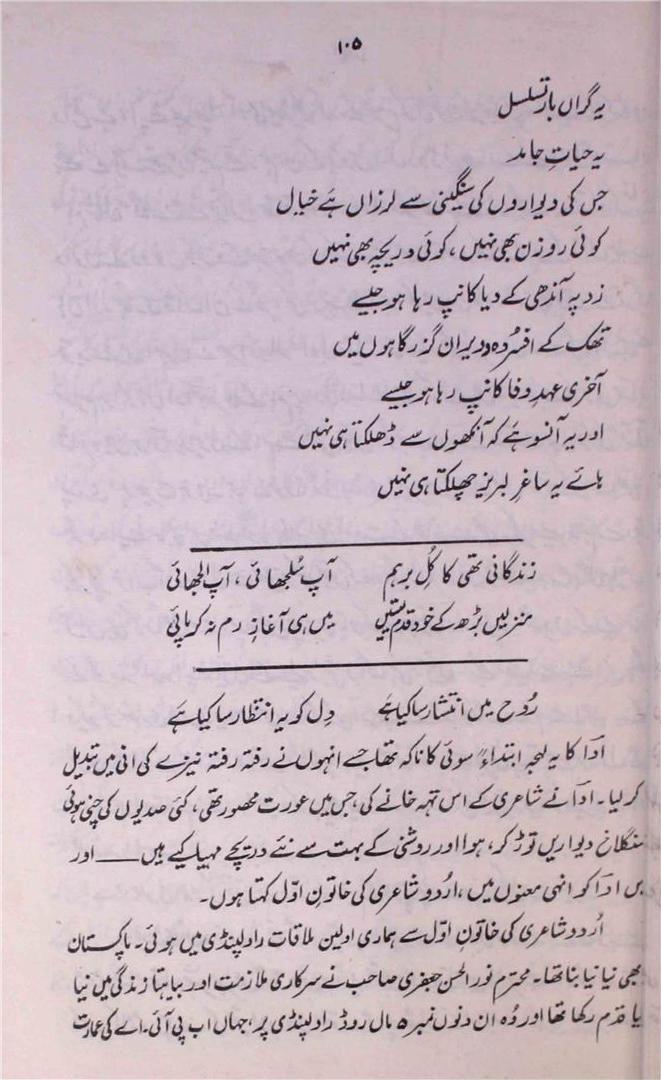 ۱۰۵
یہ گراں بار تسلسل
یہ حیاتِ جامد
جس کی دیواروں کی سنگینی سے لرزاں ہے خیال
کوئی روزن بھی نہیں، کوئی دریچہ بھی نہیں
زد پہ آندھی کے دیا کانپ رہا ہو جیسے
تھک کے افسردہ و ویران گزرگاہوں میں
آخری عہدِ وفا کانپ رہا ہو جیسے
اور یہ آنسو ہے کہ آنکھوں سے ڈھلکتا ہی نہیں
ہائے یہ ساغرِ لبریز چھلکتا ہی نہیں
زندگانی تھی کاکُل برہم آپ سُلجھائی، آپ الجھائی
منزلیں بڑھ کے خود قدم لیتیں میں ہی آغازِ رم نہ کر پائی
رُوح میں انتشار سا کیا ہے دِل کو یہ انتظار سا کیا ہے
اَدا کا یہ لہجہ ابتداءً سوئی کا ناکہ تھا جسے انہوں نے رفتہ رفتہ نیزے کی انی میں تبدیل
کر لیا۔ اَدا نے شاعری کے اس تہہ خانے کی، جس میں عورت محصور تھی، کئی صدیوں کی چنی ہوئی
سنگلاخ دیواریں توڑ کر، ہوا اور روشنی کے بہت سے نئے دریچے مہیا کیے ہیں ــــ اور
میں ادا کو انہی معنوں میں، اُردو شاعری کی خاتونِ اوّل کہتا ہوں۔
اُردو شاعری کی خاتونِ اوّل سے ہماری اولین ملاقات راولپنڈی میں ہوئی۔ پاکستان
بھی نیا نیا بنا تھا۔ محترم نور الحسن جعفری صاحب نے سرکاری ملازمت اور بیاہتا زندگی میں نیا
نیا قدم رکھا تھا اور وُہ ان دنوں نمبر ۵ مال روڈ راولپنڈی پر، جہاں اب پی آئی۔اے کی عمارت